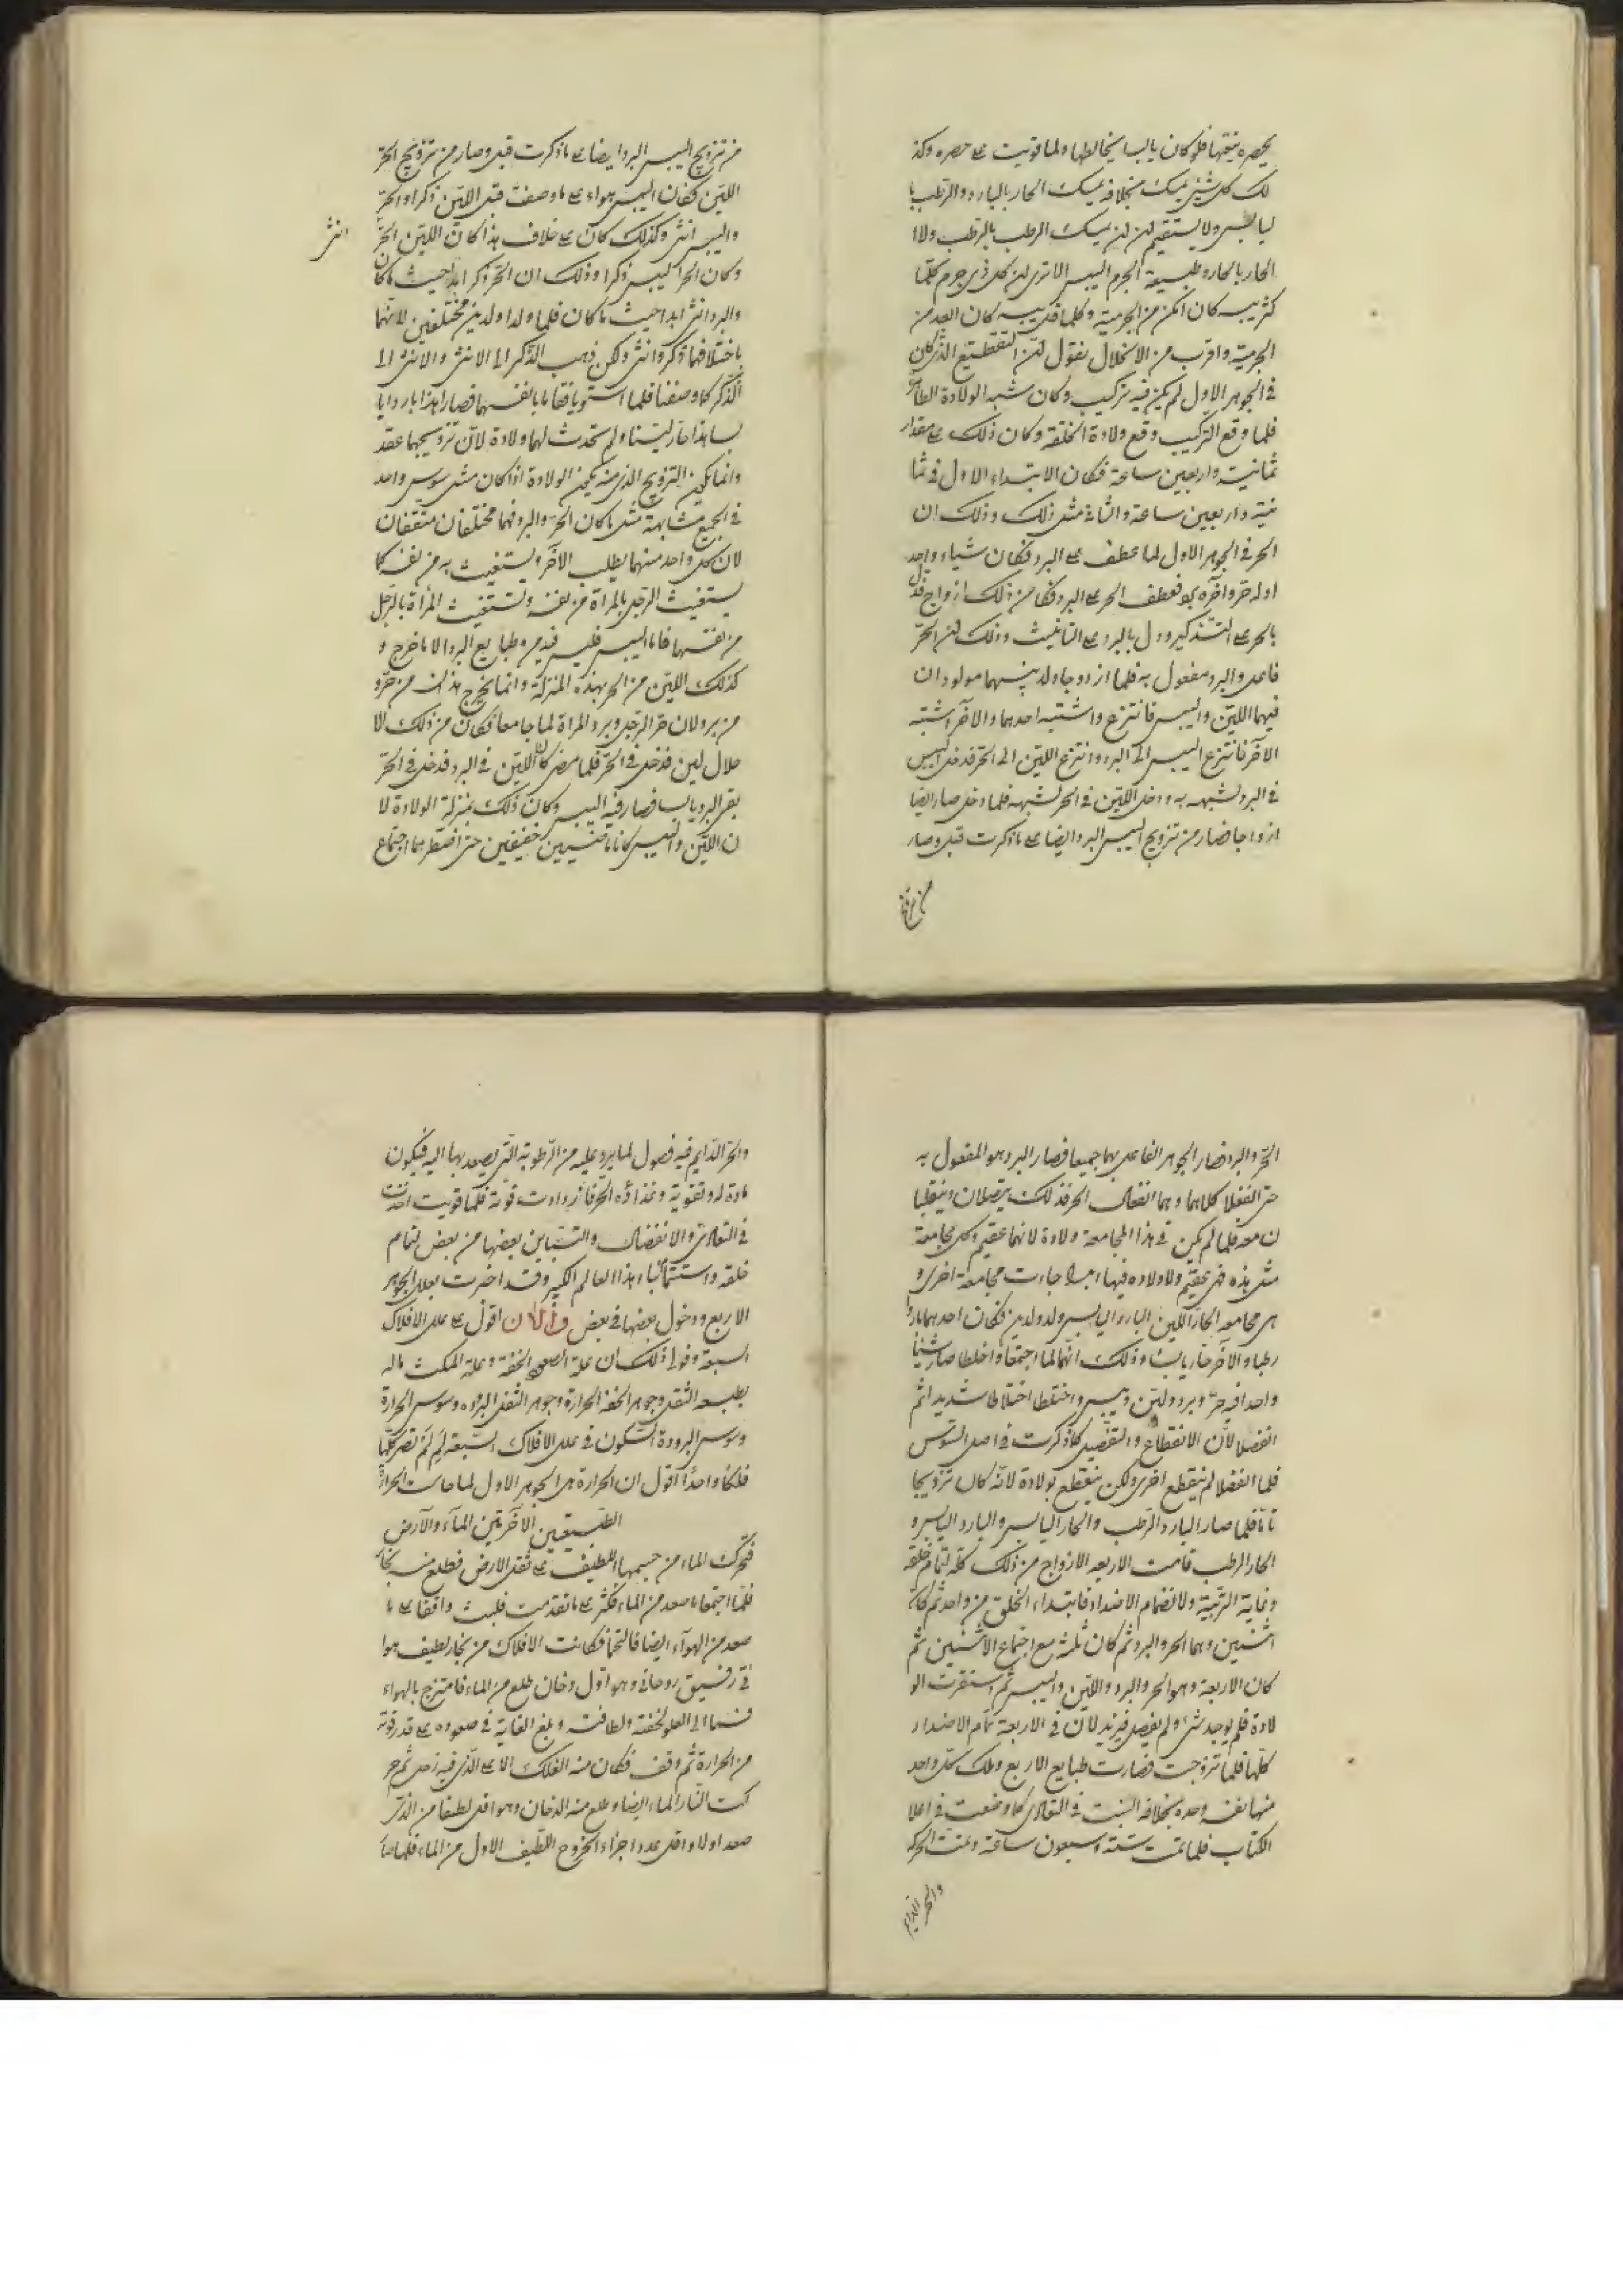 يحصره يتيها فلو كان يابسا يخالطها ولما قويت على حصره وكذ
لك كل شئ يمسك بخلافه يمسك الحار بالبارد والرطب با
ليابس ولا يستقيم لان لن يمسك الرطب بالرطب ولا ا
الحار بالحار وطبيعة الجرم اليبس الا ترى لان كل ذى جرم كلما
كثر يبسه كان امكن من الجرمية وكلما قل يبسه كان ابعد من
الجرمية واقرب من الانحلال نقول لان التقطيع الذى كان
فى الجوهر الاول لم يكن فيه تركيب وكان شبه الولادة الطاهرة
فلما وقع التركيب وقع ولادة الخلقة وكان ذلك على مقدار
ثمانية واربعين ساعة فكان الابتداء الاول فى ثما
نية واربعين ساعة والثانى مثل ذلك وذلك ان
الحر فى الجوهر الاول لما عطف على البرد فكان شياء واحد
اوله حر وآخره برد فعطف الحر على البرد فكان من ذلك ازواج فدل
بالحر على التذكير ودل بالبرد على التانيث وذلك لان الحر
فاعل والبرد مفعول به فلما ازدوجا ولد بينهما مولودان
فيهما اللين واليبس فانتزع واشتبه احدهما والآخر اشتبه
الآخر فانتزع اليبس الى البرد وانتزع اللين الى الحر فدخل اليبس
فى البرد لشبهه به ودخل اللين فى الحر لشبهه فلما دخل صار ايضا
ازواجا فصار من تزويج اليبس البرد ايضا على ما ذكرت قبل وصار
من تزويج
من تزويج اليبس البرد ايضا على ما ذكرت قبل وصار من تزويج الحر
اللين فكان اليبس هواء على ما وصفت قبل اللين ذكرا والحر
واليبس انثى وكذلك كان على خلاف هذا كان اللين الحر
انثى
وكان الحر اليبس ذكرا وذلك ان الحر ذكر ابدا حيث ما كان
والبرد انثى ابدا حيث ما كان فلما ولدا ولدين مختلفين لانهما
باختلافهما ذكر وانثى ولكن ذهب الذكر الى الانثى والانثى الى
الذكر كما وصفنا فلما استويا فقاما بانفسهما فصار هذا بارد ايا
بسا هذا حار لينا ولم تحدث لهما ولادة لان تزويجهما عقد
وانما يكون التزويج الذى منه يكون الولادة اذا كان مثل سوس واحد
فى الجميع مشابهة مثل ما كان الحر والبرد فهما مختلفان متفقان
لان كل واحد منهما يطلب الآخر ويستغيث به من نفسه كما
يستغيث الرجل بالمراة من نفسه وتستغيث المراة بالرجل
من نفسها فاما اليبس فليس فيه من طبايع البرد الا ما خرج و
كذلك اللين من الحر بهذه المنزلة وانما يخرج هذان من حر و
من برد لان حر الرجل وبرد المراة لما جامعا فكان من ذلك الا
حلال لين فدخل فى الحر فلما مضى كان اللين فى البرد فدخل فى الحر
بقى البرد يابسا فصار فيه اليبس وكان ذلك بمنزلة الولادة لا
ن اللين واليبس كانا خفيفين حتى اضطرهما اجتماع
الحر والبرد فصار الجوهر الفاعل بهما جميعا فصار البرد هو المفعول به
حتى انفعلا كلاهما وهما انفعال الحر فذلك يتصلان وينقلبا
ن معه فلما لم يكن فى هذا المجامعة ولادة لانهما عقيم وكل مجامعة
مثل هذه فهى عقيم ولا ولادة فيها ابدا جاءت مجامعة اخرى و
هى مجامعه الحار اللين البارد اليابس ولد ولدين فكان احدهما باردا
رطبا والآخر حار يابسا وذلك انهما لما اجتمعا واختلطا صار شيئا
واحدا فيه حر وبرد ولين ويبس واختلطا اختلاطا شديدا ثم
انفصلا لان الانقطاع والتفصيل كما ذكرت فى اصل السوس
فلما انفصلا لم ينقطع اخرى ولكن ينقطع بولادة لانه كان تزويجا
تاما فلما صار البارد الرطب والحار اليابس والبارد اليابس و
الحار الرطب قامت الاربعه الازواج من ذلك كله لتمام خلقه
ونهاية التربية ولانضمام الاضداد فابتداء الخلق من واحد ثم كان
اثنين وهما الحر والبرد ثم كان ثلثه مع اجتماع الاثنين ثم
كان الاربعة وهو الحر والبرد واللين واليبس ثم استقرت الو
لادة فلم يوجد شئ ولم يفصل فيزيد لان فى الاربعة تمام الاضداد
كلها فلما تزوجت فصارت طبايع الاربع وملك كل واحد
منها نفسه وحده بخلافه البنت فى التعالى كما وضعت فى اعلا
الكتاب فلما تمت ستة وسبعون ساعة وتمت الحركة
والحر الدايم
والحر الدايم فيه فصول لما يرد عليه من الرطوبة التى يصعد بها اليه فيكون
مادة له وتقوية وغذاؤه الحر فازدادت قوة فلما قويت اخذت
فى التعالى والانفضال والتباين بعضها من بعض لتمام
خلقه واستتمام انباء هذا العالم الكبير وقد اخبرت بعلل الجوهر
الاربع ودخول بعضها فى بعض والآن اقول على علل الافلاك
السبعة وقولى ذلك ان علة الصعود الخفة وعلة المكث ماله
بطبعه الثقل وجوهر الخفة الحرارة وجوهر الثقل البرودة وسوس الحرارة
وسوس البرودة السكون فى علل الافلاك السبعة لِمَ لَمْ تصر كلها
فلكا واحدا اقول ان الحرارة هى الجوهر الاول لما جاءت الحرارة
الطبيعتين الآخرتين الماء والارض
فتحرك الماء من جسمها اللطيف على ثقل الارض فطلع منه بخار
فلما اجتمعا ما صعد من الماء فكثر على ما تقدمت فلبث واقفا على ما
صعد من الهواء ايضا فالتحما فكانت الافلاك من بخار لطيف هوا
ئى رقيق روحانى وهو اول دخان طلع من الماء فامتزج بالهواء
فسما الى العلو لخفته ولطافته وبلغ الغاية فى صعوده على قدر قوته
من الحرارة ثم وقف فكان منه الفلك الاعلى الذى فيه زحل ثم حر
كت النار الماء ايضا وطلع منه الدخان وهو اقل لطفا من الذى
صعد اولا واقل عدد اجزاء الخروج اللطيف الاول من الماء فلما صا